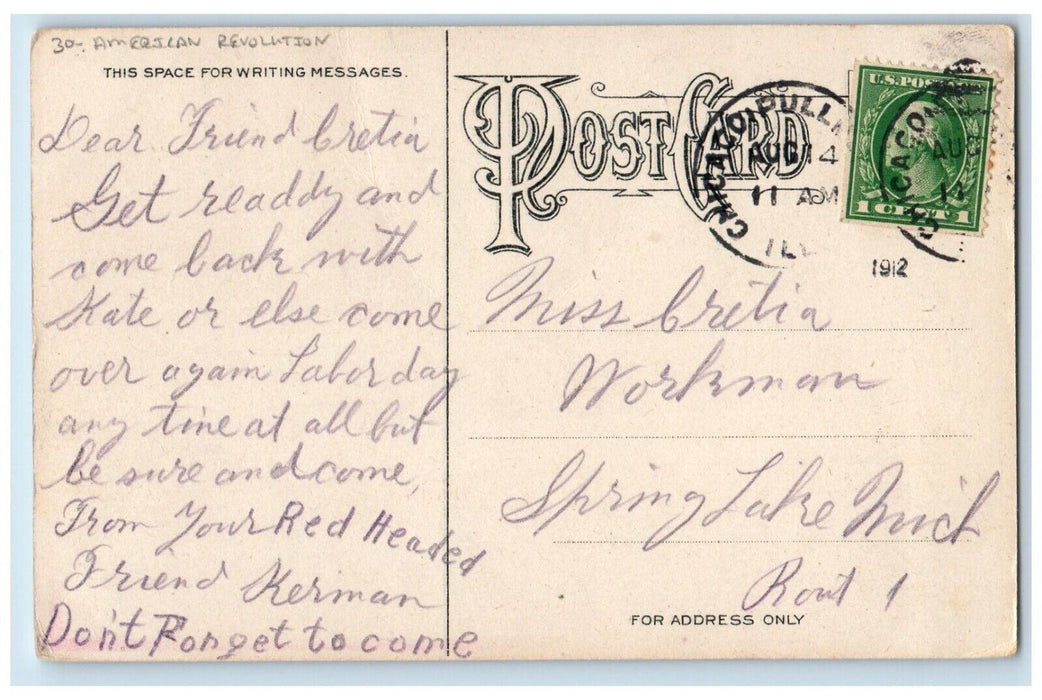 30- AMERICAN REVOLUTION
THIS SPACE FOR WRITING MESSAGES.
Dear Friend Cretia
Get readdy and
come back with
Kate or else come
over again Labor day
any tine at all but
be sure and come,
From Your Red Headed
Friend Kerman
Don't Forget to come
POST CARD
CHICAGO (PULL
AUG 14
11 AM
ILL
1912
U.S. POST
1 CENT 1
CHICAGO
AUG
11
Miss Cretia
Workman
Spring Lake Mich
Rout 1
FOR ADDRESS ONLY